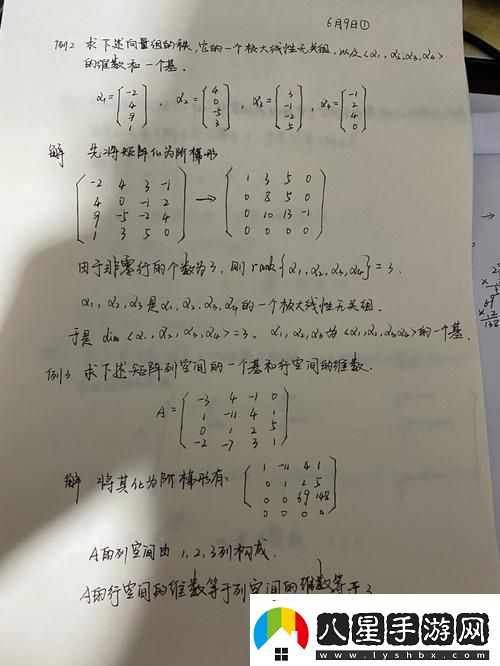 6月9日①
例2 求下述向量组的秩,它的一个极大线性无关组,以及<α₁,α₂,α₃,α₄>
的维数和一个基.
α₁=(-2 4 9 1), α₂=(4 0 -5 3), α₃=(3 -1 -2 5), α₄=(-1 2 4 0)
解 先将矩阵化为阶梯形.
-2 4 3 -1 → 1 3 5 0
4 0 -1 2 0 8 5 0
9 -5 -2 4 0 10 13 -1
1 3 5 0 0 0 0 0
由于非零行的个数为3,则rank{α₁,α₂,α₃,α₄}=3.
α₁,α₂,α₃是α₁,α₂,α₃,α₄的一个极大线性无关组.
于是 dim<α₁,α₂,α₃,α₄>=3, α₁,α₂,α₃为<α₁,α₂,α₃,α₄>的一个基.
例3 求下述矩阵列空间的一个基和行空间的维数.
A=
-3 4 -1 0
1 -11 4 1
0 1 2 5
-2 -7 3 1
解 将其化为阶梯形有
1 -11 4 1
0 1 2 5
0 0 69 148
0 0 0 0
A的列空间由1,2,3列构成.
A的行空间的维数等于列空间的维数等于3
八星手游网
www.lyshbx.com